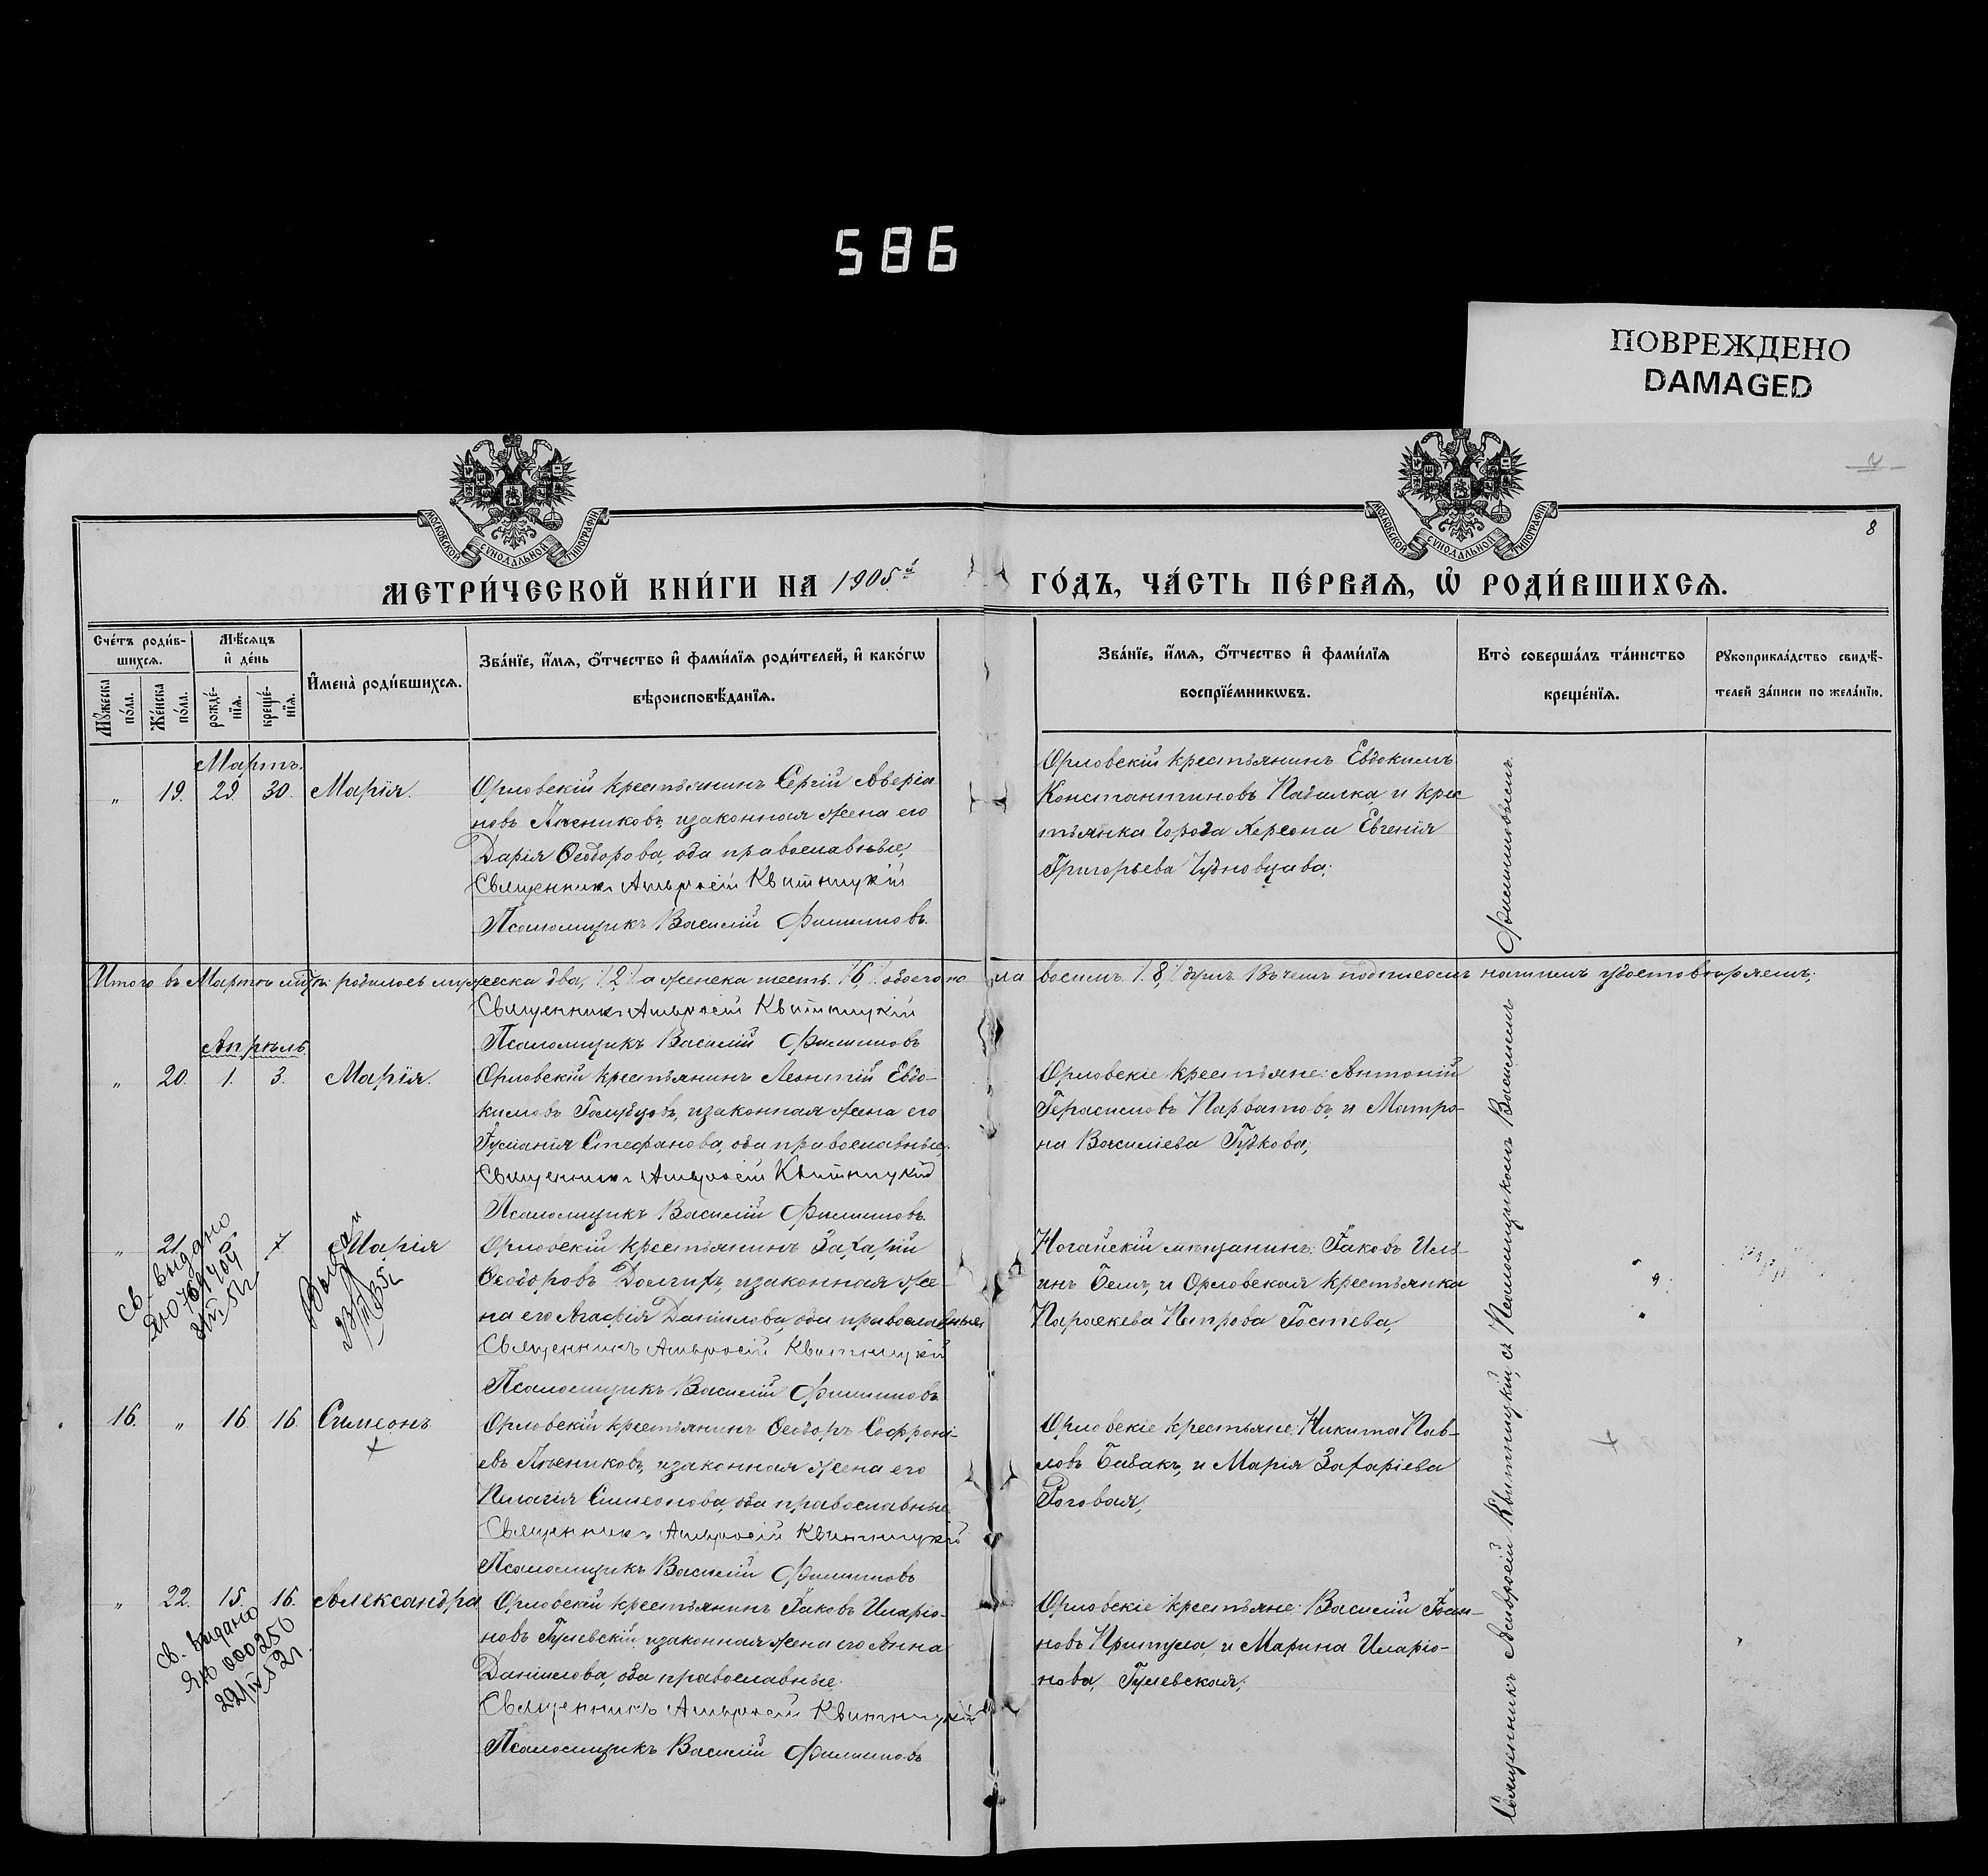 586
ПОВРЕЖДЕНО
DAMAGED
МОСКОВСКОЙ СѴНОДАЛЬНОЙ ТИПОГРАФІИ
МОСКОВСКОЙ СѴНОДАЛЬНОЙ ТИПОГРАФІИ
8
МЕТРИ́ЧЕСКОЙ КНИ́ГИ НА 1905й ГО́ДЪ, ЧА́СТЬ ПЕ́РВАѦ, Ѽ РОДИ́ВШИХСѦ.
Сче́тъ роди́в-
шихсѧ.
Мѣ́сѧцъ
и҆ де́нь
Мꙋ́жеска
по́ла.
Же́нска
по́ла.
рожде́-
нїѧ.
креще́-
нїѧ.
И҆мена̀ роди́вшихсѧ.
Зва́нїе, и҆́мѧ, ѻ҆́тчество и҆ фами́лїѧ роди́телей, и҆ како́гѡ
вѣроисповѣ́данїѧ.
Зва́нїе, и҆́мѧ, ѻ҆́тчество и҆ фами́лїѧ
воспрїе́мникѡвъ.
Кто̀ соверша́лъ та́инство
креще́нїѧ.
Рꙋкоприкла́дство свидѣ́-
телей за́писи по жела́нїю.
Мартъ.
" 19. 29. 30. Марія.
Орловскій крестьянинъ Сергій Аверіа
новъ Пасѣниковъ, и законная жена его
Дарія Ѳеодорова, оба православные,
Священникъ Амвросій Квитницкій
Псаломщикъ Василій Филиповъ.
Орловскій крестьянинъ Евдокимъ
Константиновъ Павилка, и крес
тьянка города Херсона Евгенія
Григорьева Чудновцова;
Итого въ Мартѣ мцѣ: родилось мужеска два, /:2:/ а женска шесть. /:6:/ обоего пола восемъ /:8:/ душъ. Въ чемъ подписомъ нашимъ удостовѣряемъ;
Священникъ Амвросій Квитницкій
Псаломщикъ Василій Филиповъ
Апрѣль.
" 20. 1. 3. Марія.
Орловскій крестьянинъ Леонтій Евдо-
кимовъ Голубцовъ, и законная жена его
Іуліанія Стефанова, оба православные,
Священникъ Амвросій Квитницкій
Псаломщикъ Василій Филиповъ.
Орловскіе крестьяне: Антоній
Герасимовъ Парватовъ, и Матро-
на Василіева Гудкова;
" 21 Марія
св. выдано
Орловскій крестьянинъ Захарій
Ѳеодоровъ Долгихъ, и законная же-
на его Агафія Даніилова, оба православные
Священникъ Амвросій Квитницкій
Псаломщикъ Василій Филиповъ
Ногайскій мѣщанинъ: Іаковъ Иль-
инъ Белы, и Орловская крестьянка
Параскева Петрова Гостева,
16. " 16. 16. Симеонъ
Орловскій крестьянинъ Ѳеодоръ Софроні-
евъ Пасѣниковъ, и законная жена его
Пелагія Симеонова, оба православные
Священникъ Амвросій Квитницкій
Псаломщикъ Василій Филиповъ
Орловскіе крестьяне: Никита Пав-
ловъ Бабакъ, и Марія Захаріева
Роговая,
" 22. 15. 16. Александра
св. выдано
ЯЮ 000250
Орловскій крестьянинъ Іаковъ Иларіо-
новъ Гулевскій, и законная жена его Анна
Даніилова, оба православные.
Священникъ Амвросій Квитницкій
Псаломщикъ Василій Филиповъ
Орловскіе крестьяне: Василій Іоан-
новъ Притула, и Марина Иларіо-
нова, Гулевская;
Священникъ Амвросій Квитницкій, съ Псаломщикомъ Василіемъ Филиповымъ.